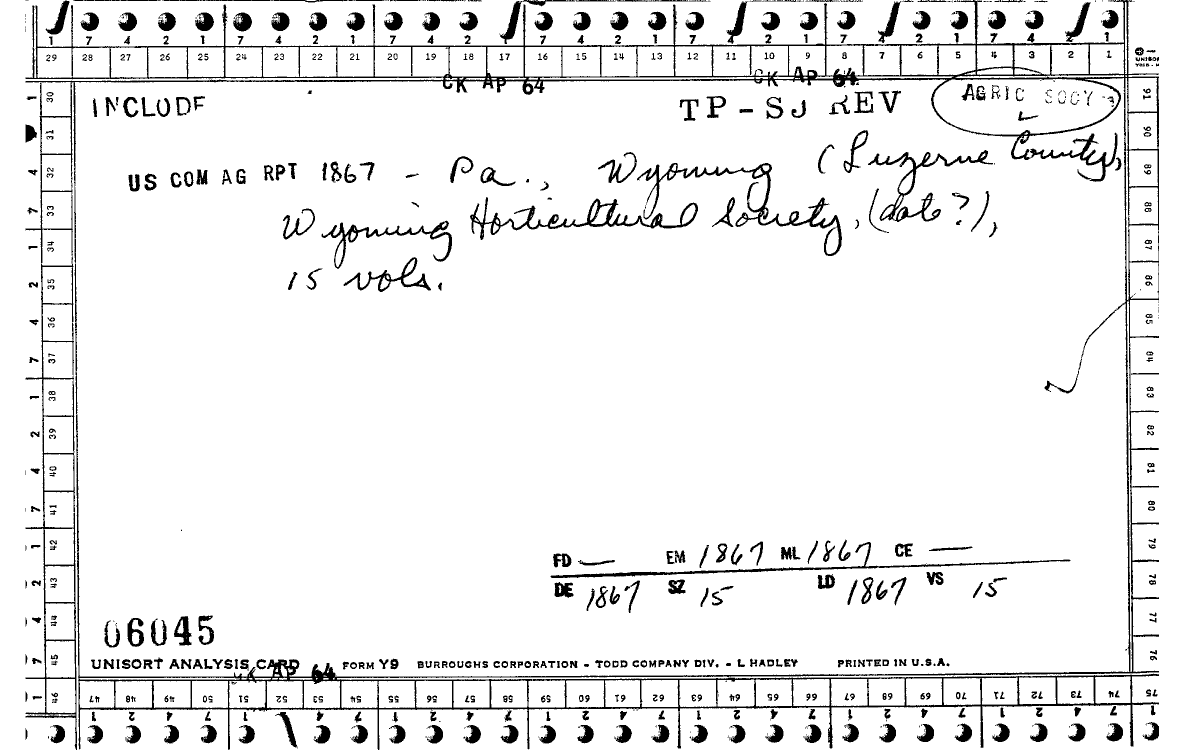 7 4 2 1 7 4 2 1 7 4 2 1 7 4 2 1 7 4 2 1 7 4 2 1 7 4 2 1
29 28 27 26 25 24 23 22 21 20 19 18 17 16 15 14 13 12 11 10 9 8 7 6 5 4 3 2 1
CK AP 64 CK AP 64
INCLUDE TP-SJ REV AGRIC SOCY
US COM AG RPT 1867 - Pa., Wyoming (Luzerne County),
Wyoming Horticultural Society, (date?),
15 vols.
FD — EM 1867 ML 1867 CE —
DE 1867 SZ 15 LD 1867 VS 15
06045
UNISORT ANALYSIS CARD FORM Y9 BURROUGHS CORPORATION - TODD COMPANY DIV. - L HADLEY PRINTED IN U.S.A.
CK AP 64
30 31 32 33 34 35 36 37 38 39 40 41 42 43 44 45 46
47 48 49 50 51 52 53 54 55 56 57 58 59 60 61 62 63 64 65 66 67 68 69 70 71 72 73 74 75
91 90 89 88 87 86 85 84 83 82 81 80 79 78 77 76